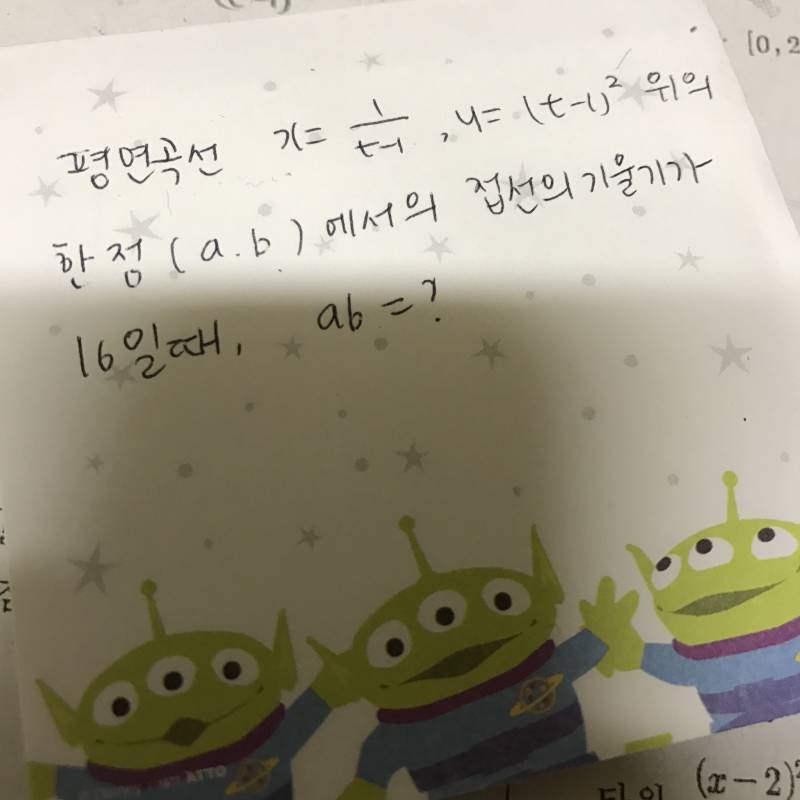 [0, 2
평면곡선 x = 1/(t-1) , y = (t-1)² 위의
한 점 (a.b) 에서의 접선의 기울기가
16일때, ab = ?
ATTO
(x-2)